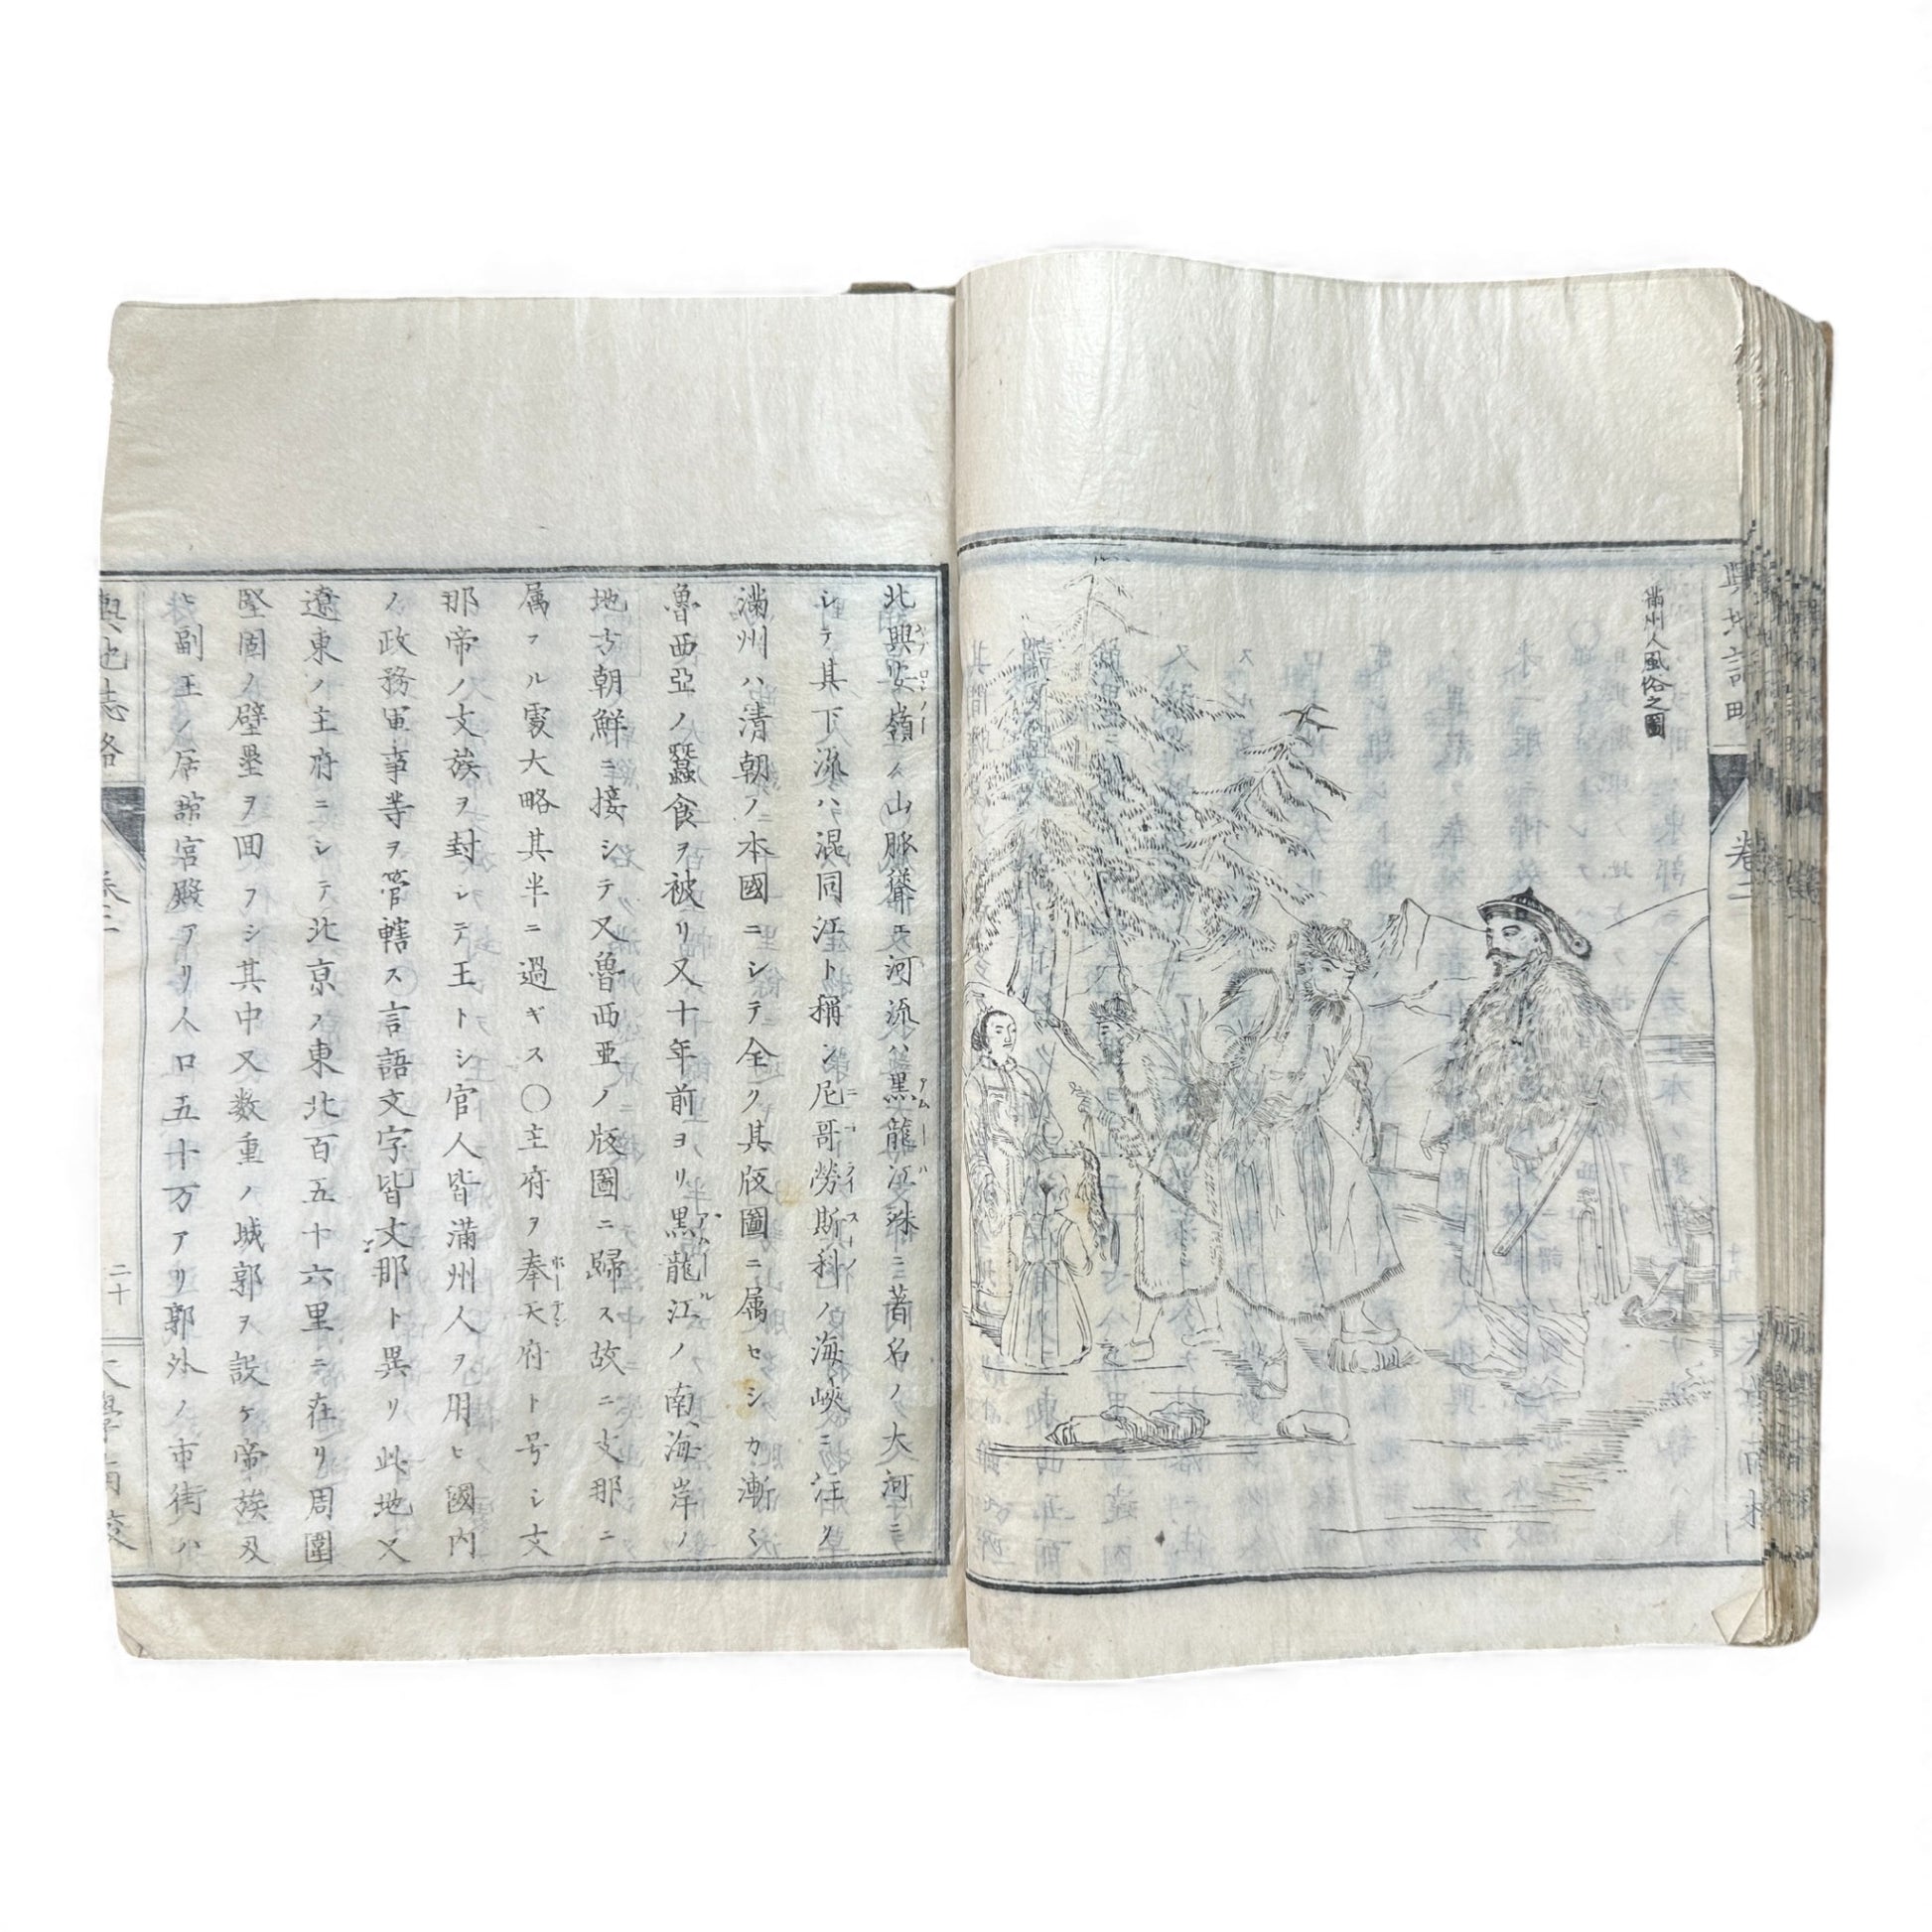 滿州人風俗之圖
北興安嶺ノ山脈聳エ河流ハ黒龍江殊ニ著名ノ大河ニ
シテ其下流ハ混同江ト稱シ尼哥勞斯科ノ海峽ニ注ク
滿州ハ清朝ノ本國ニシテ全ク其版圖ニ属セシカ漸ク
魯西亞ノ蠶食ヲ被リ又十年前ヨリ黒龍江ノ南海岸ノ
地方朝鮮ニ接シテ又魯西亜ノ版圖ニ歸ス故ニ支那ニ
属スル處大略其半ニ過ギス〇主府ヲ奉天府ト号シ支
那帝ノ文族ヲ封シテ王トシ官人皆滿州人ヲ用ヒ國内
ノ政務軍事等ヲ管轄ス言語文字皆支那ト異リ此地又
遼東ノ主府ニシテ北京ノ東北百五十六里ニ在リ周圍
堅固ノ壁壘ヲ囬フシ其中又数重ノ城郭ヲ設ケ帝族及
ヒ副王ノ居館宮殿アリ人口五十万アリ郭外ノ市街ハ
輿地誌略
卷二
二十
大學南校